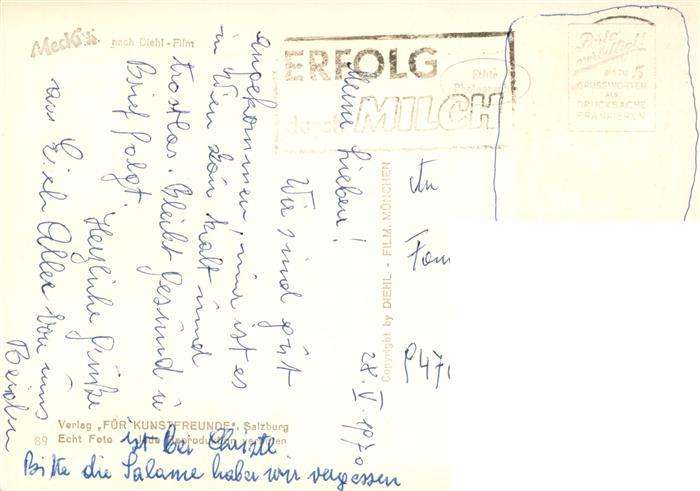 Mecki
nach Diehl-Film
ERFOLG
durch MILCH
Echte
Photographie
BIS ZU 5
GRUSSWORTEN
ALS
DRUCKSACHE
FRANKIEREN
28. V. 1970
Meine Lieben!
Wir sind gut
angekommen, nur ist es
in Wien kalt und
trostlos. Bleibt gesund u
Brief folgt.
Herzliche Grüße
an Eich Alle von uns
Beiden
An
Fam
547
Copyright by DIEHL - FILM, MÜNCHEN
Verlag „FÜR KUNSTFREUNDE“, Salzburg
89 Echt Foto Jede Reproduktion verboten
Bitte die Salame haben wir vergessen
ist Bei Christl